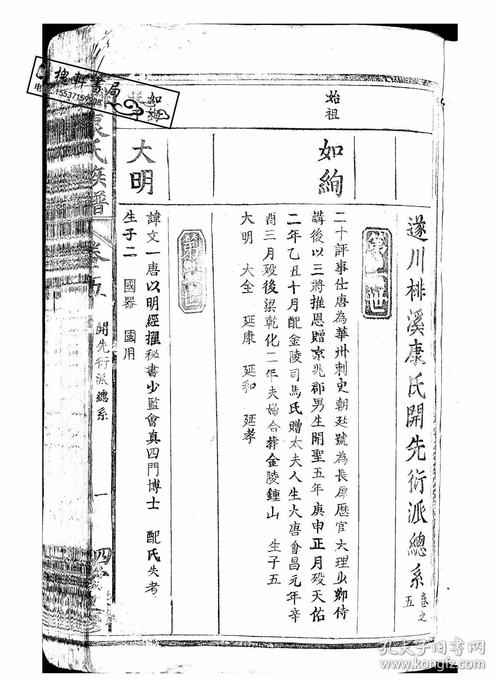 遂川桃溪康氏開先衍派總系 卷之五
始祖
如絢
第一世
二十評事仕唐為華州刺史朝廷號為長厚歷官大理少卿侍
講後以三將推恩贈京兆郡男生開聖五年庚申正月歿天佑
二年乙丑十月配金陵司馬氏贈太夫人生大唐會昌元年辛
酉三月歿後梁乾化二年夫婦合葬金陵鍾山 生子五
大明 大全 延康 延和 延孝
第二世
大明
諱文一唐以明經擢秘書少監會真四門博士 配氏失考
生子二 國器 國用
氏族譜
開先衍派總系
一
孔夫子旧书网
www.kongfz.com